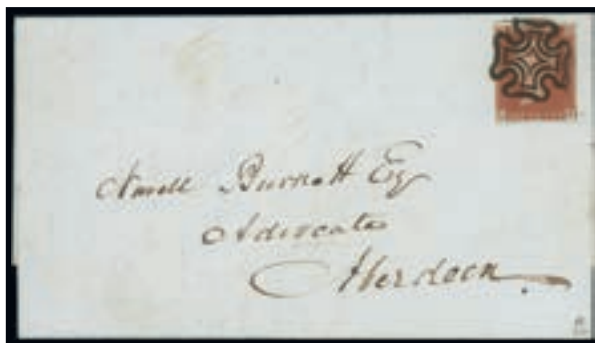 Burnett Esq
Advocate
Aberdeen